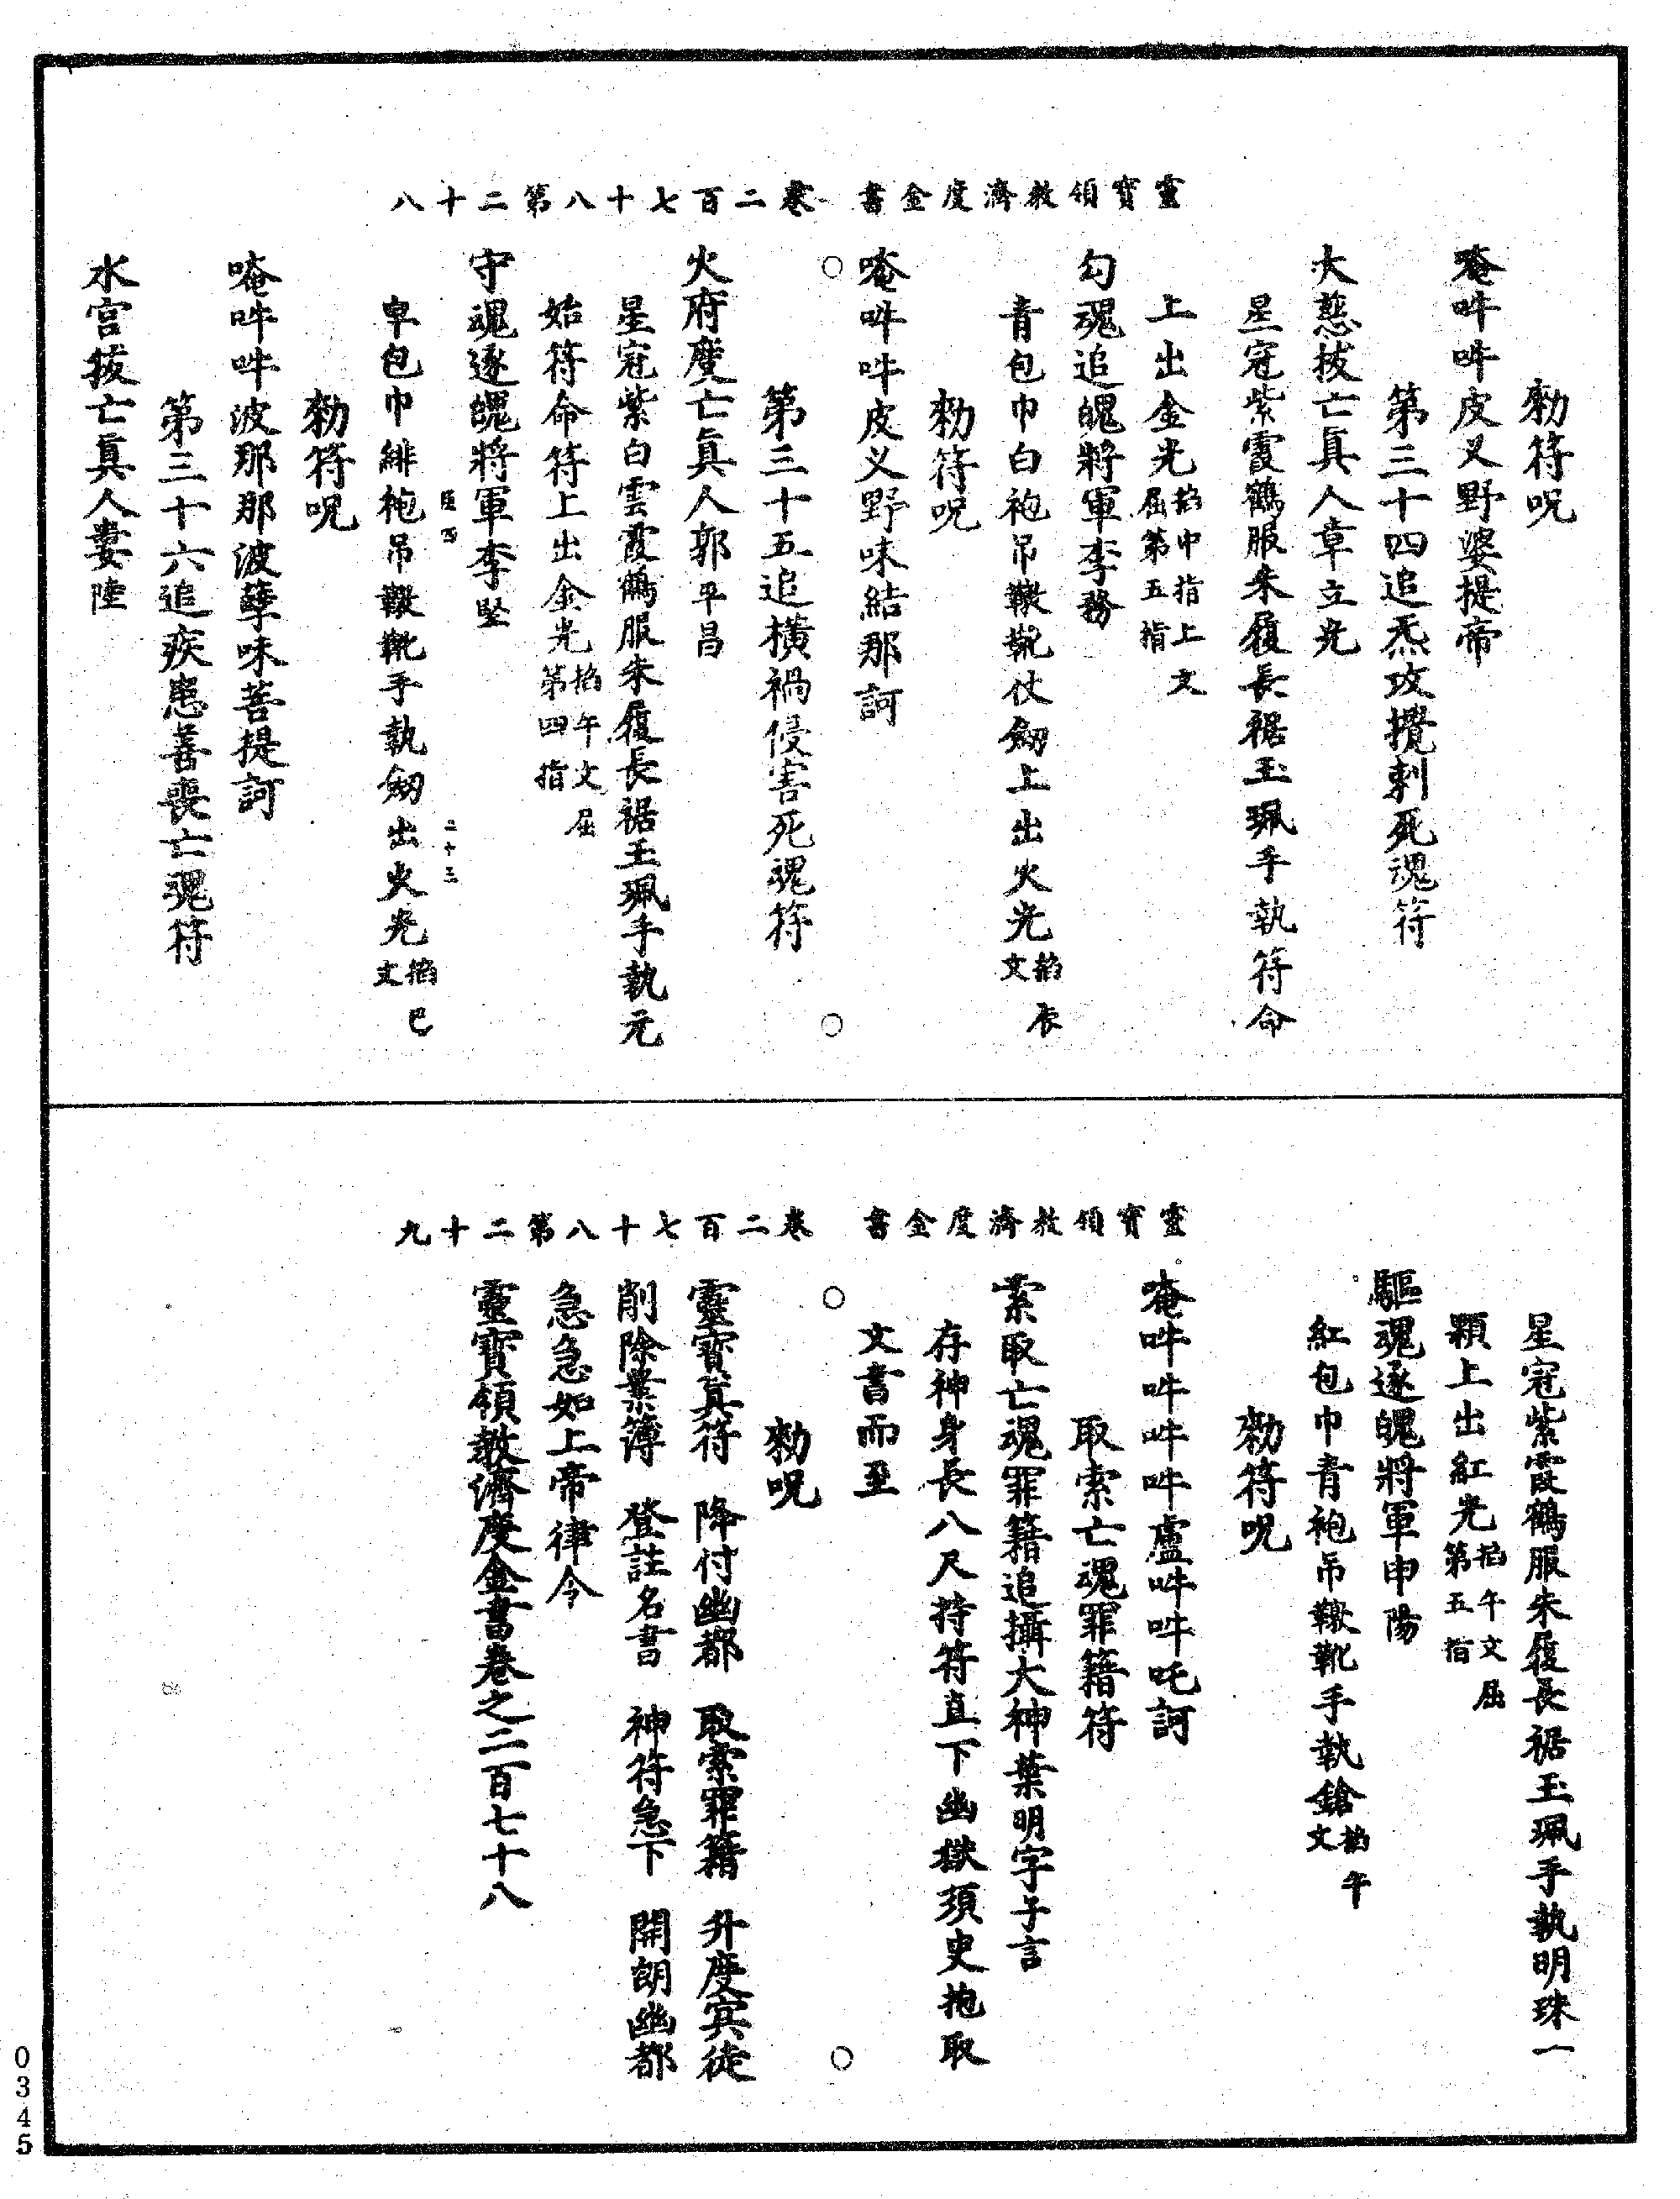 靈寶領教濟度金書　卷二百七十八第二十八
勑符呪
唵吽吽皮义野婆提帝
第三十四追炁攻攪刺死魂符
大慈拔亡眞人章立光
星冠紫霞鶴服朱履長裾玉珮手執符命
上出金光掐中指上文屈第五指
勾魂追魄將軍李務
青包巾白袍吊𩎟靴仗劒上出火光掐辰文
勑符呪
唵吽吽皮义野味結那訶
第三十五追橫禍侵害死魂符
火府度亡眞人郭平昌
星冠紫白雲霞鶴服朱履長裾玉珮手執元
始符命符上出金光掐午文屈第四指
守魂逐魄將軍李堅
二十三
皁包巾緋袍吊𩎟靴手執劒出火光掐巳文
勑符呪
唵吽吽波那那波孽味菩提訶
第三十六追疾患善喪亡魂符
水宮拔亡眞人婁陸
靈寶領教濟度金書　卷二百七十八第二十九
星冠紫霞鶴服朱履長裾玉珮手執明珠一
顆上出紅光掐午文屈第五指
驅魂逐魄將軍申陽
紅包巾青袍吊𩎟靴手執鎗掐午文
勑符呪
唵吽吽吽吽盧吽吽吒訶
取索亡魂罪籍符
索取亡魂罪籍追攝大神葉明字子言
存神身長八尺持符直下幽獄須臾抱取
文書而至
勑呪
靈寶眞符　降付幽都　取索罪籍　升度宾徒
削除業簿　登註名書　神符急下　開朗幽都
急急如上帝律令
靈寶領教濟度金書卷之二百七十八
0345